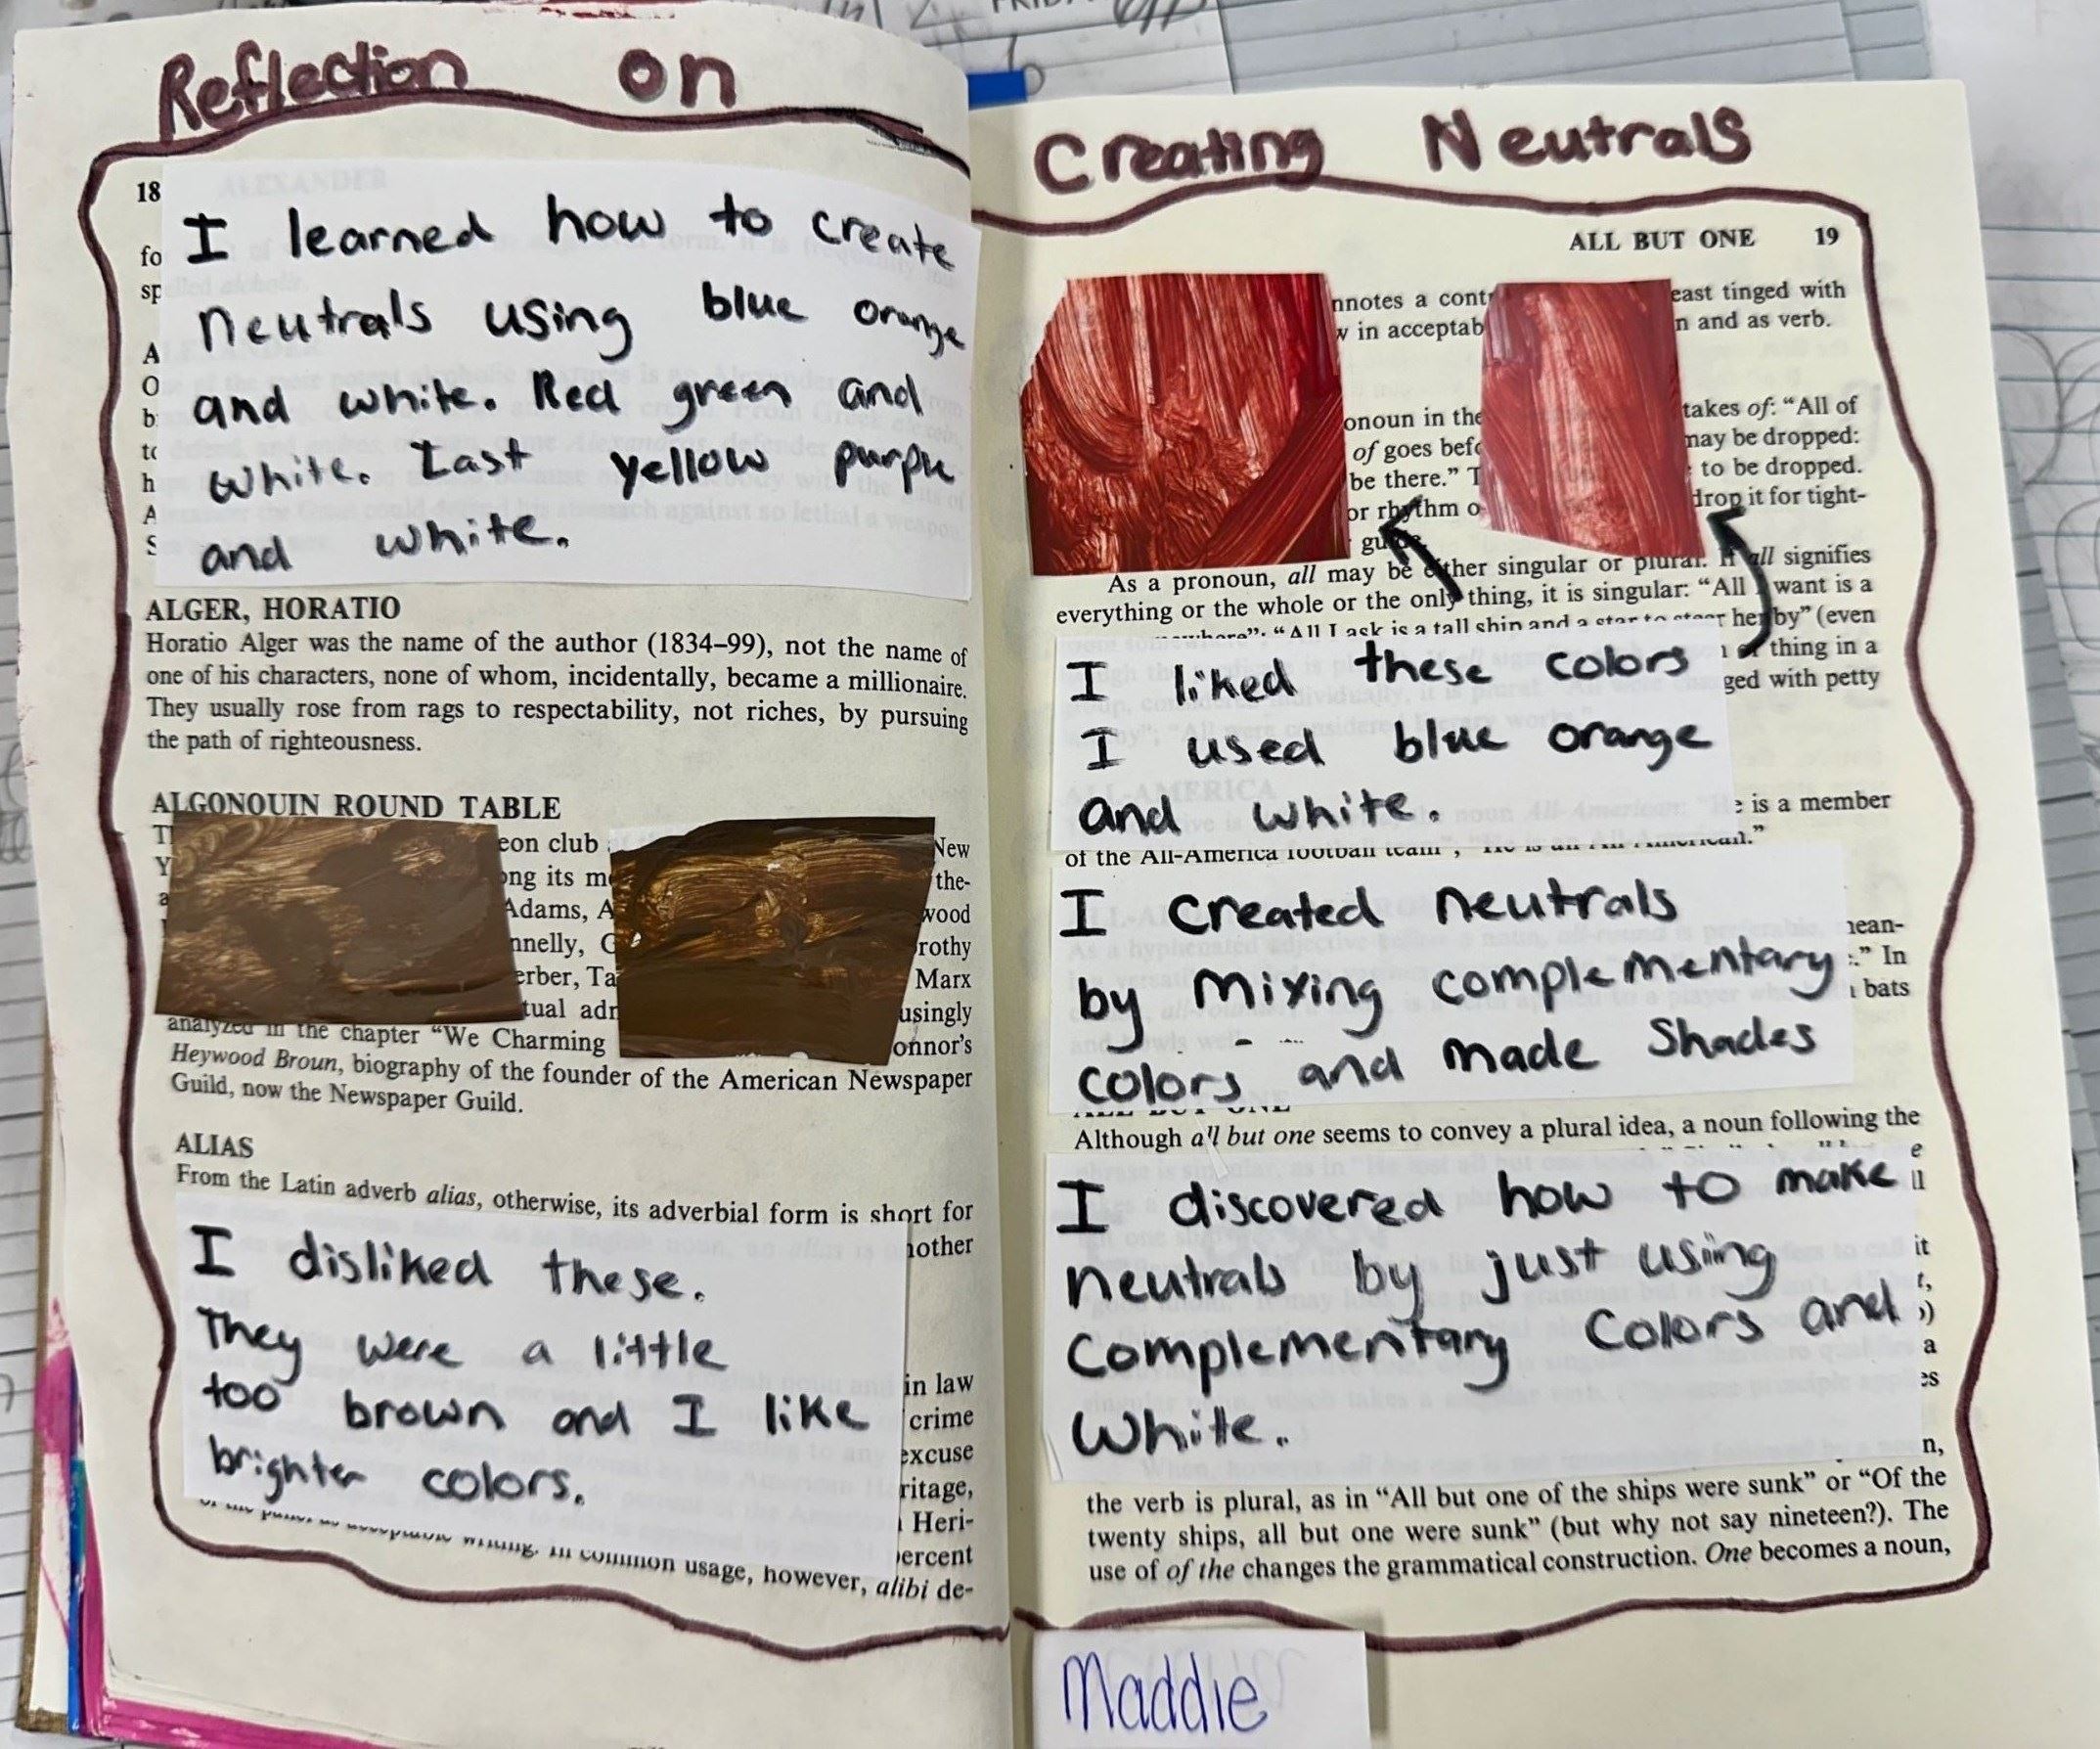 Reflection on
18
I learned how to create
neutrals using blue orange
and white. Red green and
white. Last yellow purple
and white.
fo
sp
A
O
b
to
h
A
S
ALGER, HORATIO
Horatio Alger was the name of the author (1834–99), not the name of
one of his characters, none of whom, incidentally, became a millionaire.
They usually rose from rags to respectability, not riches, by pursuing
the path of righteousness.
ALGONQUIN ROUND TABLE
eon club New
ong its the-
Adams, A wood
nnelly, rothy
erber, Ta Marx
tual adr usingly
analyzed in the chapter “We Charming onnor’s
Heywood Broun, biography of the founder of the American Newspaper
Guild, now the Newspaper Guild.
ALIAS
From the Latin adverb alias, otherwise, its adverbial form is short for
nother
I disliked these.
They were a little
too brown and I like
brighter colors.
in law
crime
excuse
ritage,
Heri-
percent
writing. In common usage, however, alibi de-
Creating Neutrals
ALL BUT ONE 19
nnotes a cont east tinged with
in acceptab n and as verb.
onoun in the takes of: “All of
of goes befo may be dropped:
be there.” T to be dropped.
or rhythm o drop it for tight-
As a pronoun, all may be either singular or plural. If all signifies
everything or the whole or the only thing, it is singular: “All I want is a
“All I ask is a tall ship and a star to steer her by” (even
thing in a
ged with petty
I liked these colors
I used blue orange
and white.
is a member
of the All-America football team”; “He is an All-American.”
I created neutrals
by mixing complementary
colors and made shades
nean-
” In
bats
Although all but one seems to convey a plural idea, a noun following the
I discovered how to make
neutrals by just using
complementary colors and
white.
it
a
es
n,
the verb is plural, as in “All but one of the ships were sunk” or “Of the
twenty ships, all but one were sunk” (but why not say nineteen?). The
use of of the changes the grammatical construction. One becomes a noun,
Maddie